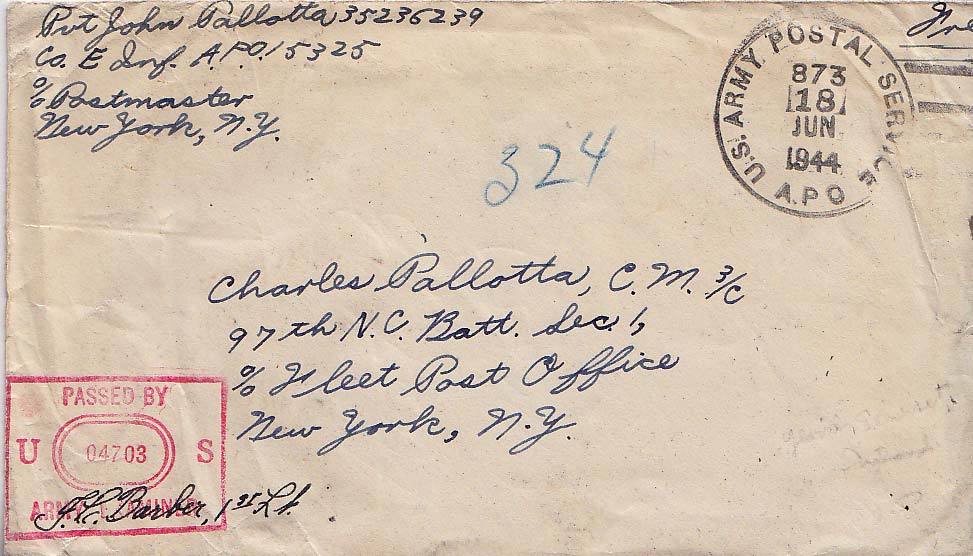 Pvt John Pallotta 35236239
Co. E Inf. A.P.O. 15325
c/o Postmaster
New York, N.Y.
U.S. ARMY POSTAL SERVICE
873
18
JUN
1944
A.P.O
324
Charles Pallotta, C.M. 3/c
97th N.C. Batt. Sec. 1,
c/o Fleet Post Office
New York, N.Y.
PASSED BY
U 04703 S
ARMY EXAMINER
Barber, 1st Lt.